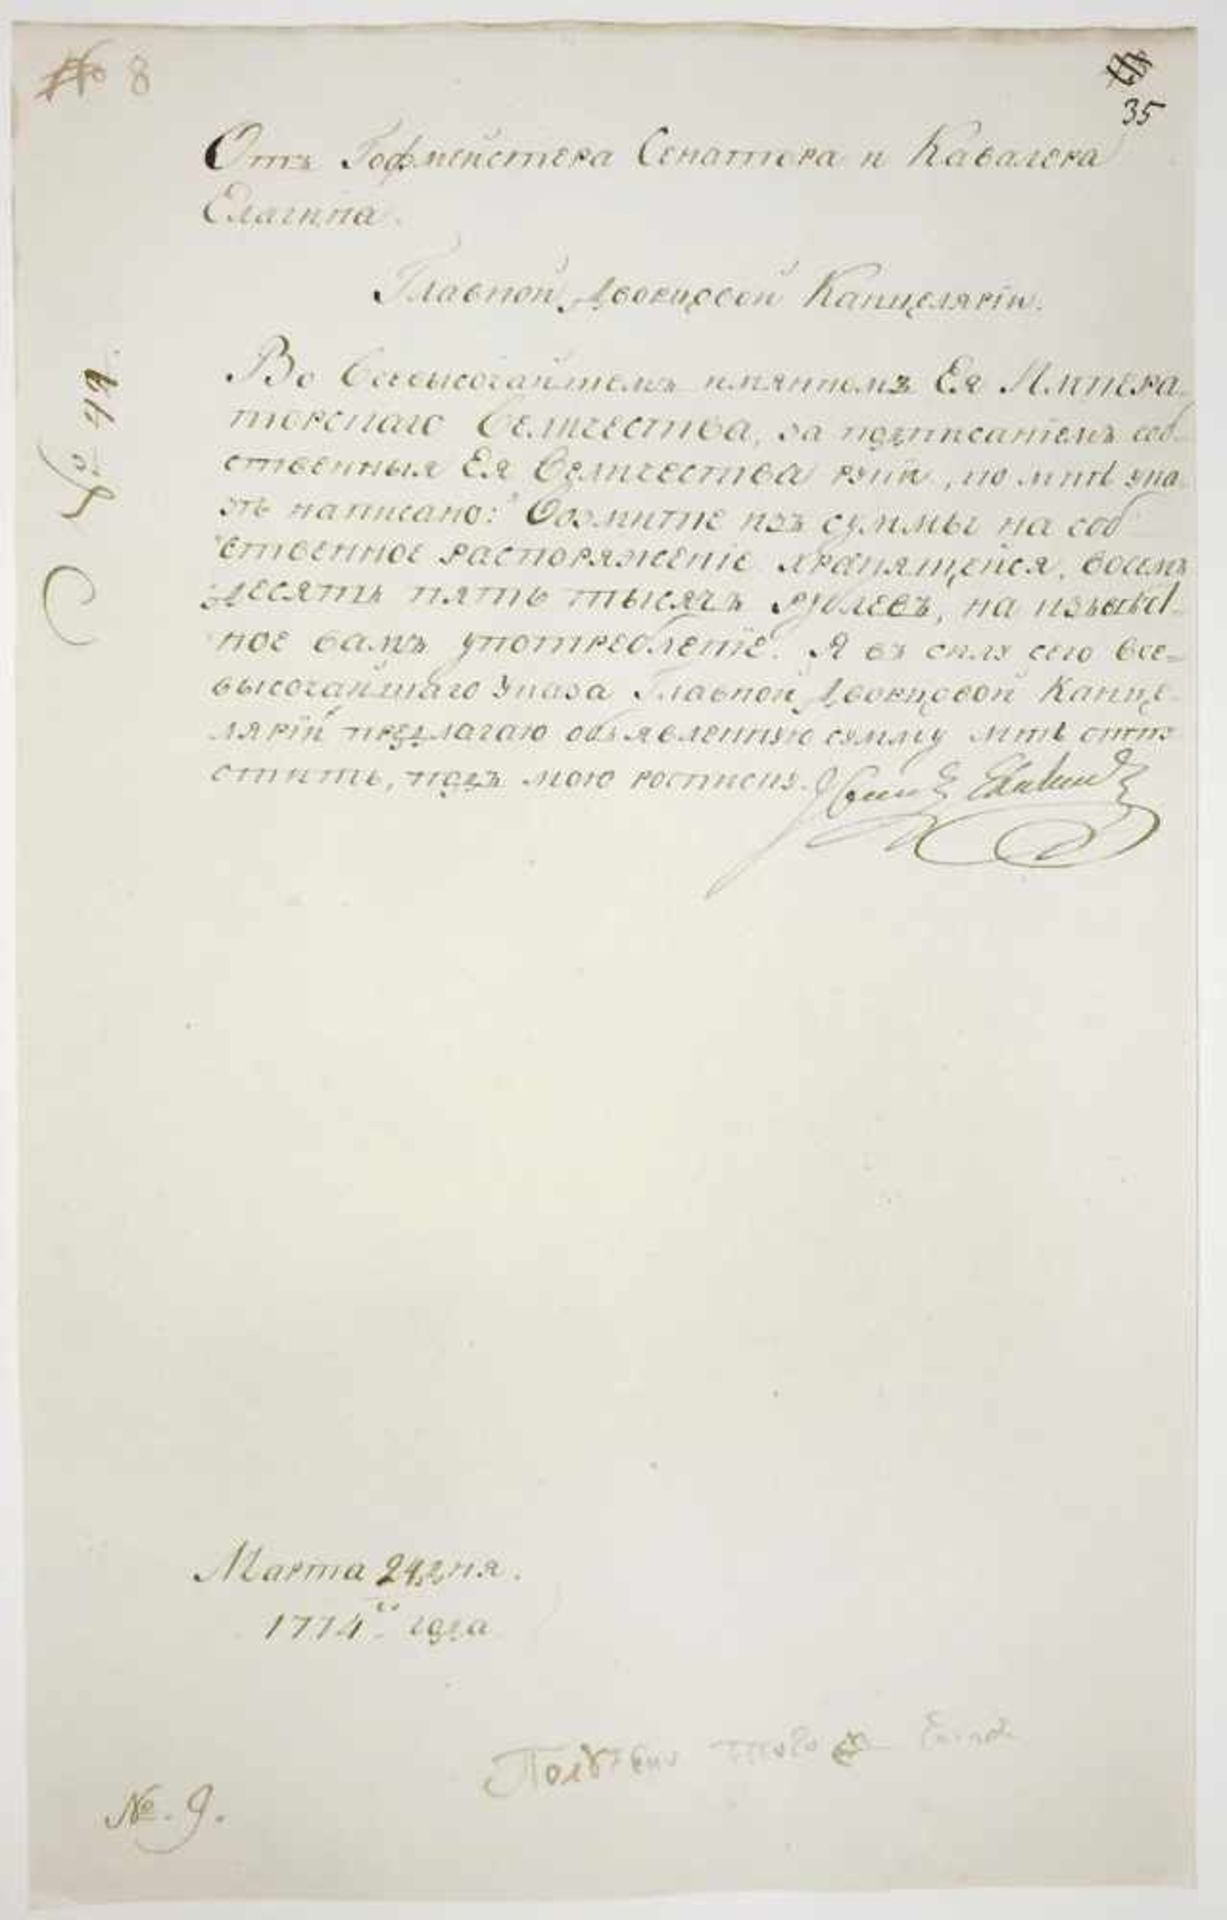 8
35
Отъ Гофмейстера Сенатора и Кавалера
Елагина.
Главной Дворцовой Канцеляріи.
№ 44.
Во Всевысочайшемъ имянномъ Ея Импера-
торскаго Величества, за подписаніемъ соб-
ственныя Ея Величества руки, ко мнѣ ука-
зѣ написано: Возмите изъ суммы на соб
ственное распоряженіе хранящейся, восемъ
десятъ пять тысячъ рублевъ, на извѣст-
ное вамъ употребленіе. Я въ силу сего все-
высочайшаго Указа Главной Дворцовой Канце-
ляріи предлагаю объявленную сумму мнѣ отпу
стить, подъ мою росписку. Иванъ Елагинъ
Марта 24 дня.
1774го года
Получено
№. 9.